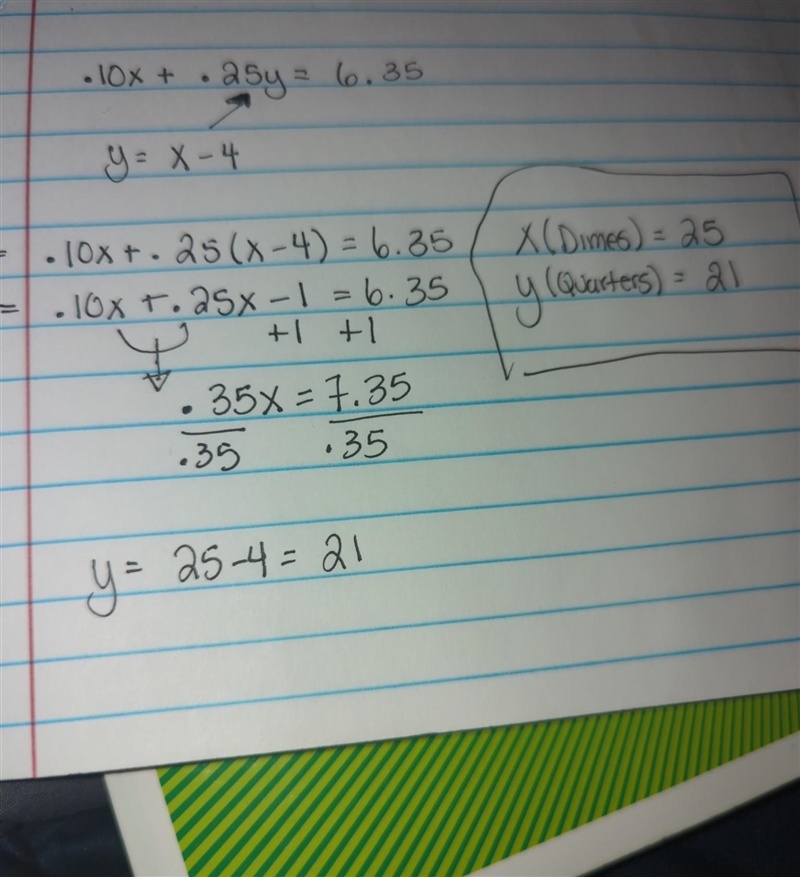 .10x + .25y = 6.35
y = x - 4
= .10x + .25(x-4) = 6.35
= .10x + .25x - 1 = 6.35
+1 +1
.35x = 7.35
.35 .35
y = 25-4 = 21
x (Dimes) = 25
y (Quarters) = 21